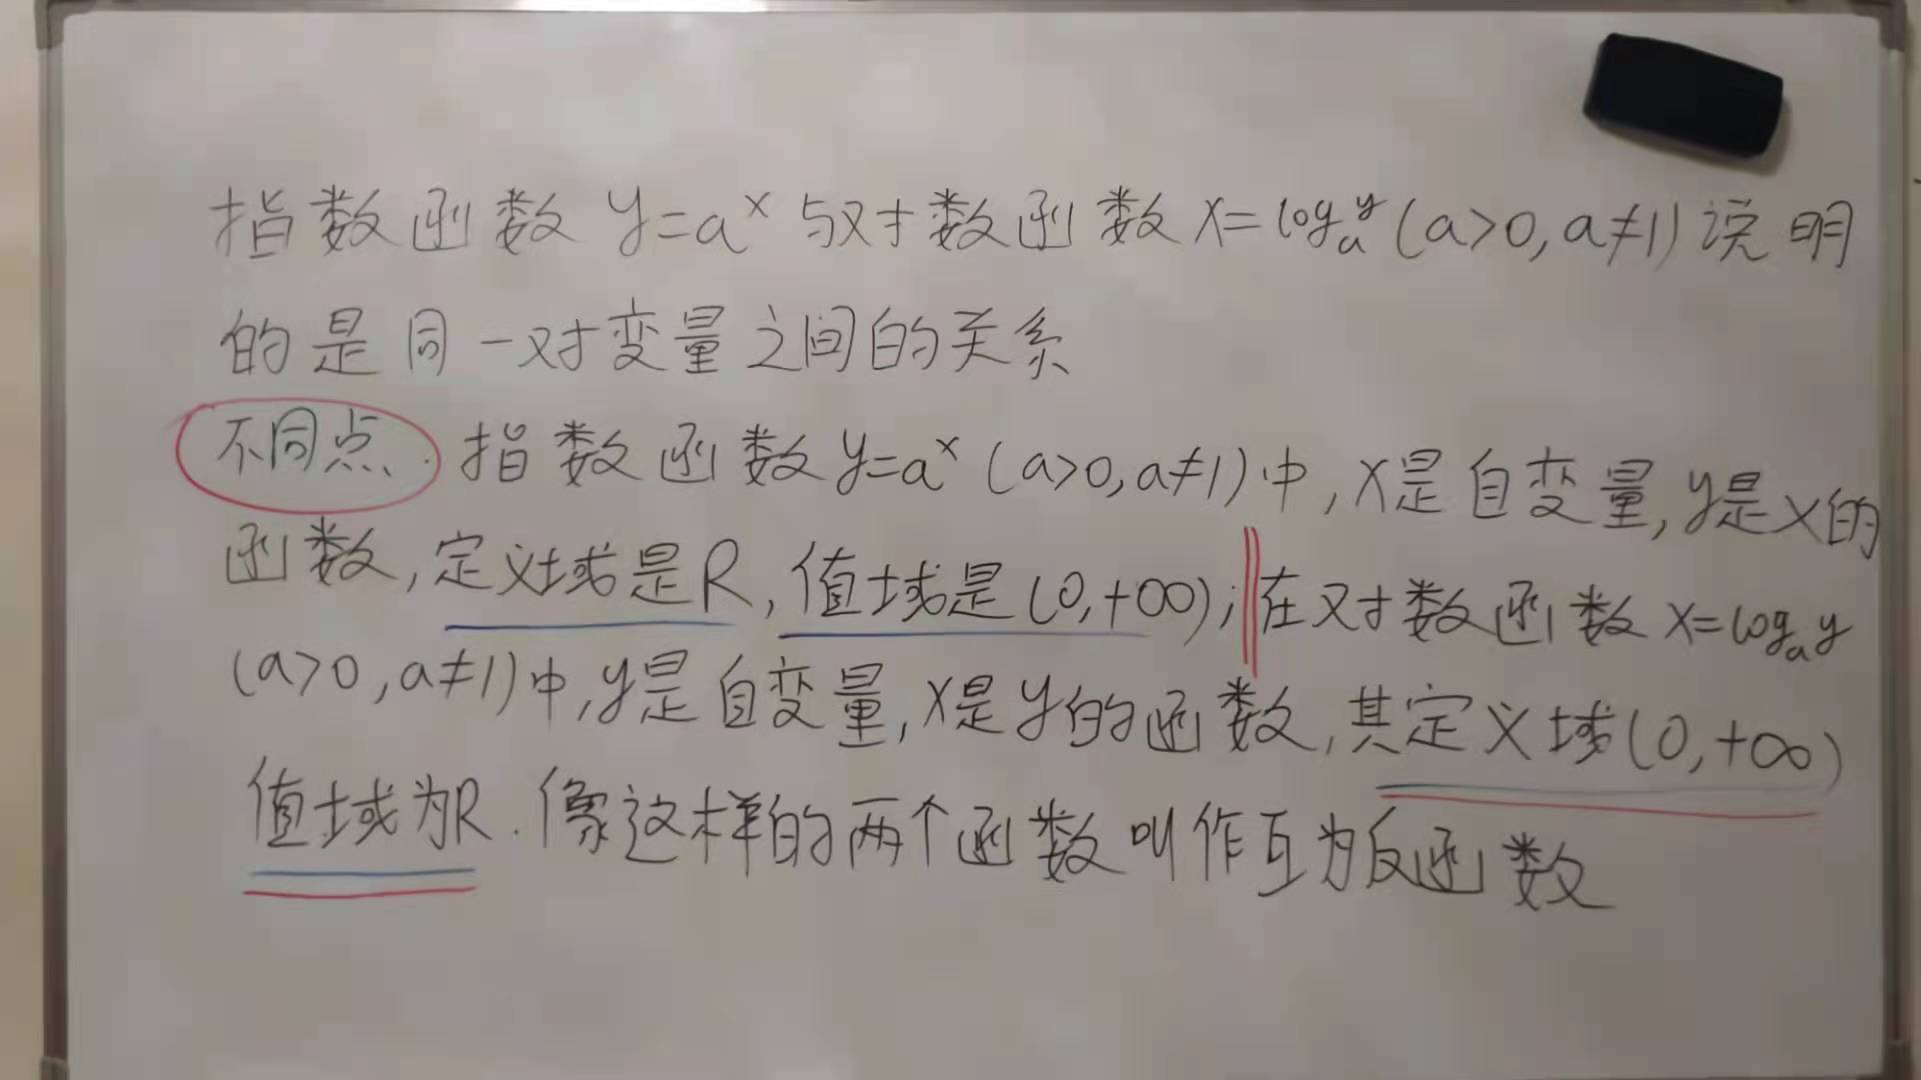 指数函数 y=aˣ 与对数函数 x=logₐʸ (a>0,a≠1) 说明
的是同一对变量之间的关系
不同点. 指数函数 y=aˣ (a>0,a≠1) 中,x是自变量,y是x的
函数,定义域是R,值域是(0,+∞);在对数函数 x=logₐy
(a>0,a≠1)中,y是自变量,x是y的函数,其定义域(0,+∞)
值域为R.像这样的两个函数叫作互为反函数